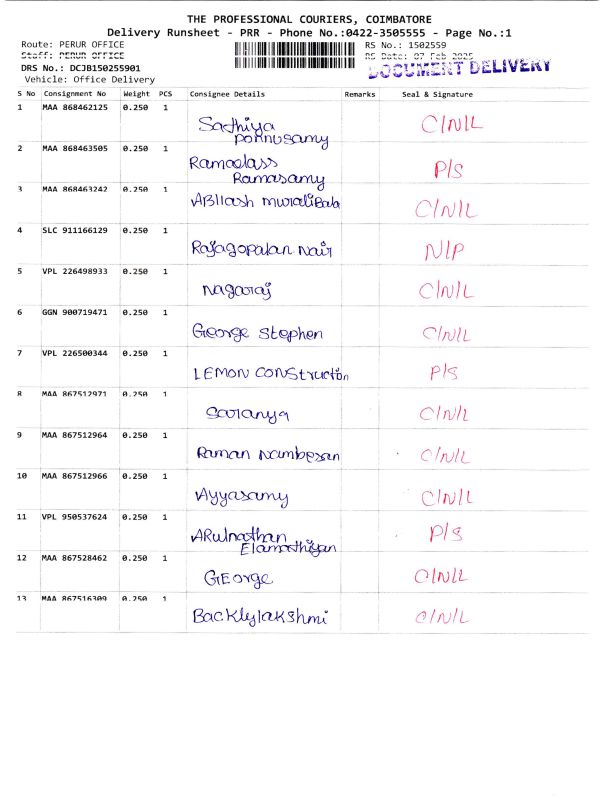 THE PROFESSIONAL COURIERS, COIMBATORE
Delivery Runsheet - PRR - Phone No.:0422-3505555 - Page No.:1
Route: PERUR OFFICE RS No.: 1502559
Staff: PERUR OFFICE RS Date: 07 Feb 2025
DRS No.: DCJB150255901 DOCUMENT DELIVERY
Vehicle: Office Delivery
S No Consignment No Weight PCS Consignee Details Remarks Seal & Signature
1 MAA 868462125 0.250 1 Sathiya C/N/L
Ponnusamy
2 MAA 868463505 0.250 1 Ramadass P/S
Ramasamy
3 MAA 868463242 0.250 1 ABIlash muraliBala C/N/L
4 SLC 911166129 0.250 1 Rajagopalan Nair N/P
5 VPL 226498933 0.250 1 Nagaraj C/N/L
6 GGN 900719471 0.250 1 George Stephen C/N/L
7 VPL 226500344 0.250 1 LEMON CONStruction P/S
8 MAA 867512971 0.250 1 Saranya C/N/L
9 MAA 867512964 0.250 1 Raman Nambesan C/N/L
10 MAA 867512966 0.250 1 Ayyasamy C/N/L
11 VPL 950537624 0.250 1 ARulnathan P/S
Elamathiyan
12 MAA 867528462 0.250 1 GEorge C/N/L
13 MAA 867516309 0.250 1 Backlylakshmi C/N/L